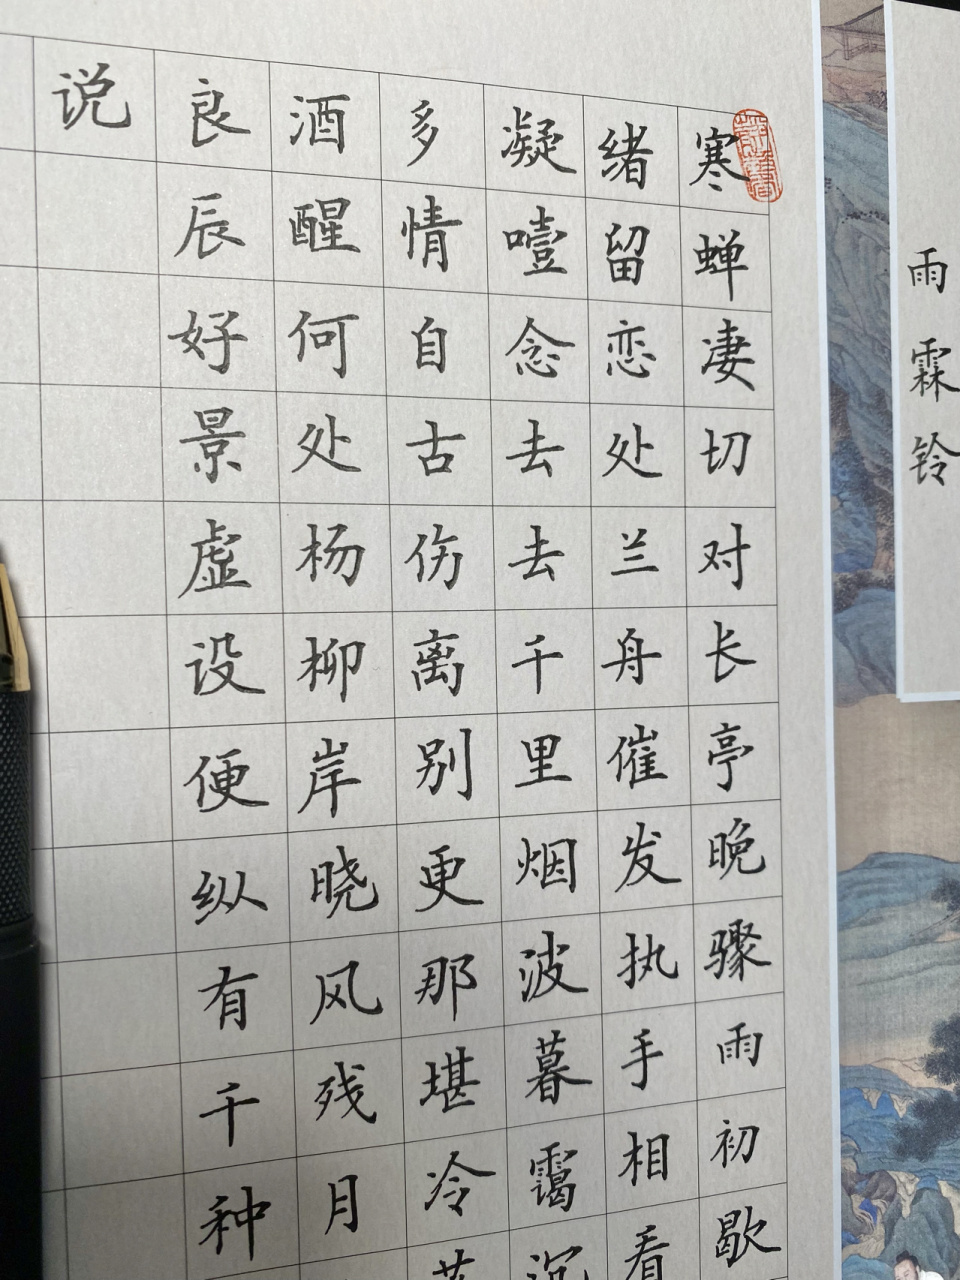 雨霖铃
寒蝉凄切对长亭晚骤雨初歇
绪留恋处兰舟催发执手相看
凝噎念去去千里烟波暮霭沉
多情自古伤离别更那堪冷落
酒醒何处杨柳岸晓风残月
良辰好景虚设便纵有千种
说